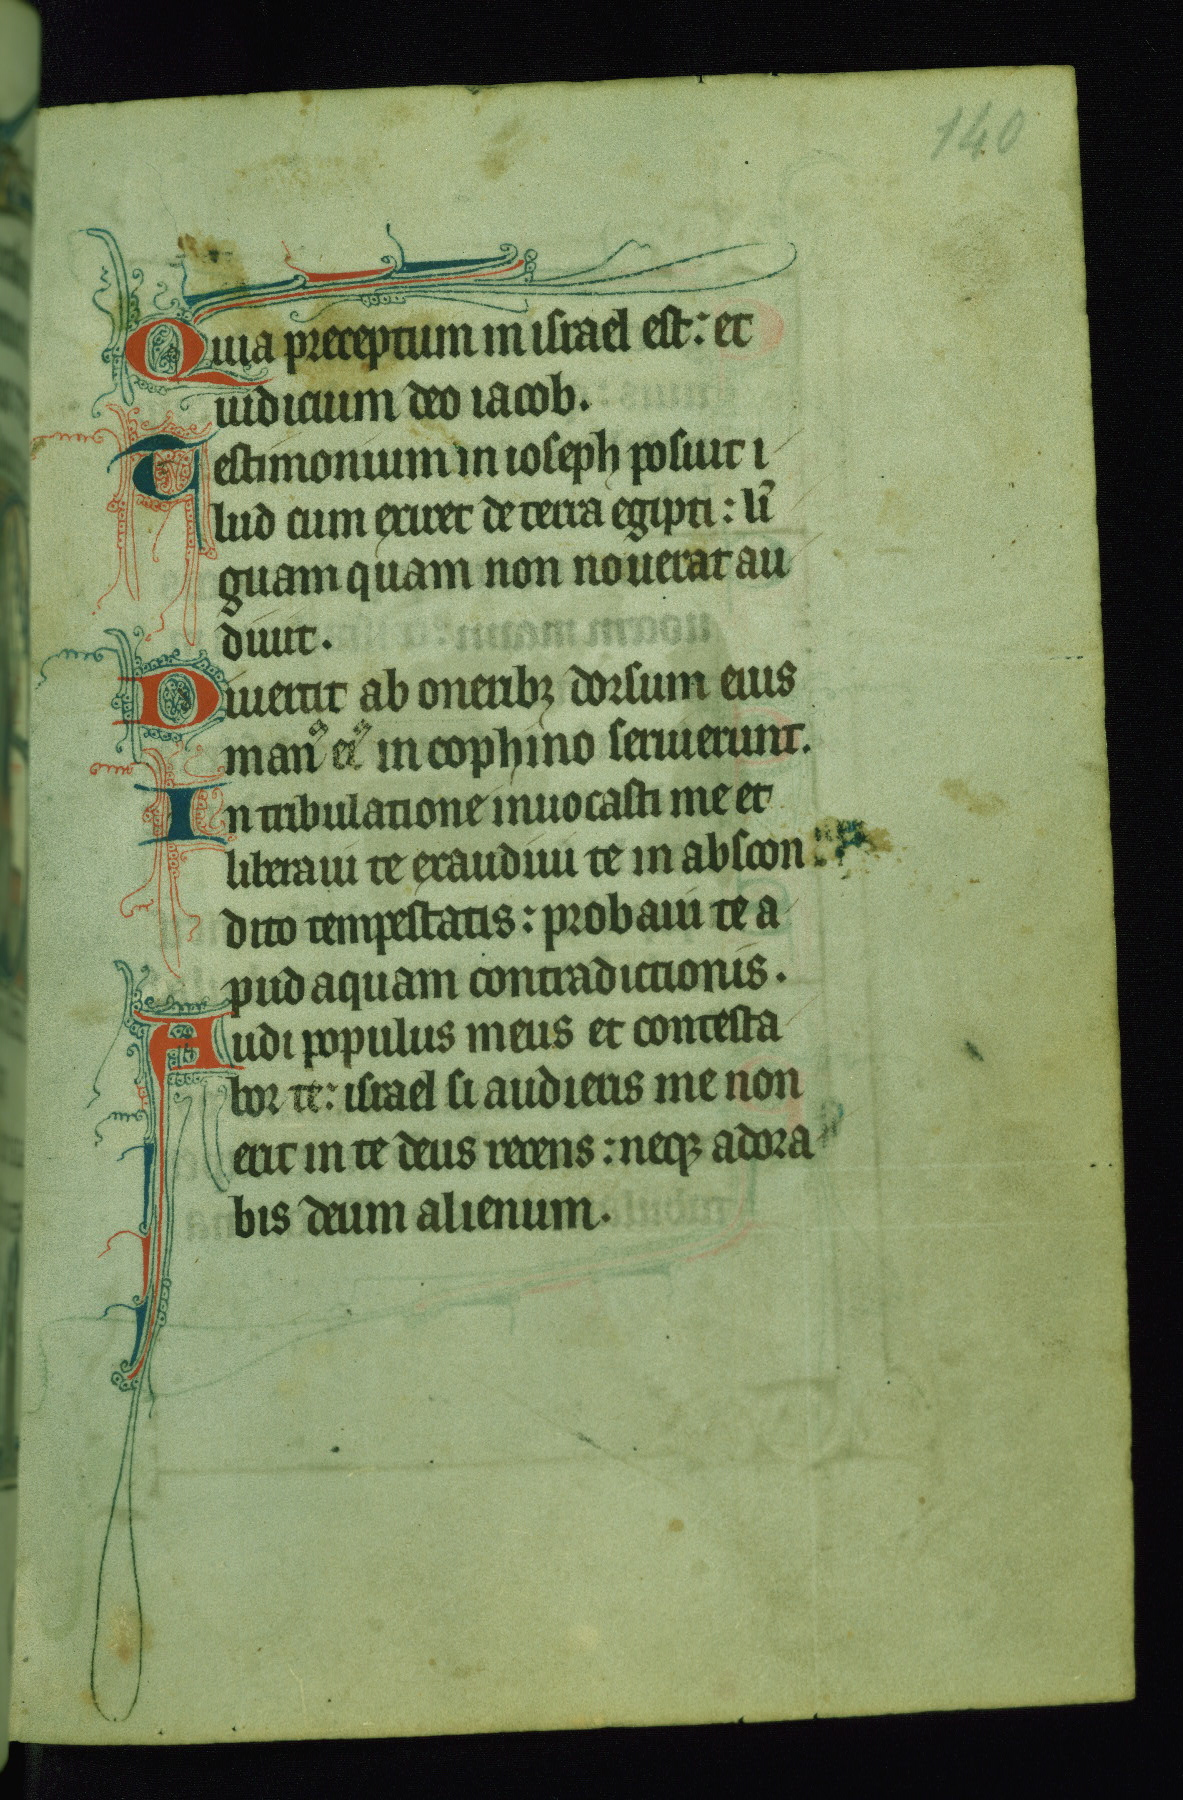 140
Quia preceptum in israel est: et
iudicium deo iacob.
Testimonium in ioseph posuit i
lud cum exiret de terra egipti: lī
guam quam non nouerat au
diuit.
Diuertit ab oneribꝫ dorsum eius
manꝰ eiꝰ in cophino seruierunt.
In tribulatione inuocasti me et
liberaui te exaudiui te in abscon
dito tempestatis: probaui te a
pud aquam contradictionis.
Audi populus meus et contesta
bor te: israel si audieris me non
erit in te deus recens: neqꝫ adora
bis deum alienum.